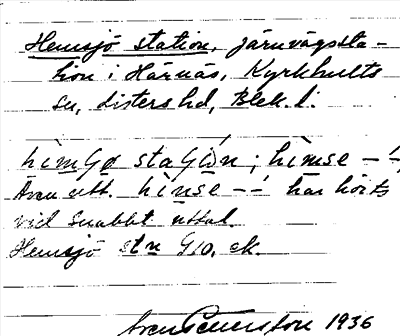 Hemsjö station, järnvägssta-
tion i Härnäs, Kyrkhults
sn, Listers hd, Blek. l.
hìmʃø staʃón; hìmse –´–,
Även utt. hìnse –´– har hörts
vid snabbt uttal.
Hemsjö stn G10. ek.
Sven Petersson 1936